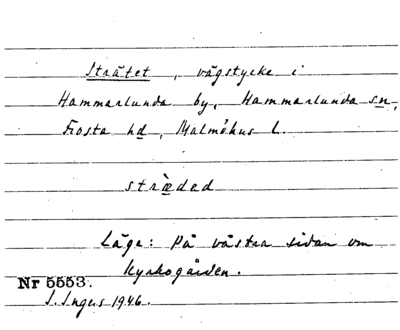 Strätet, vägstycke i
Hammarlunda by, Hammarlunda sn,
Frosta hd, Malmöhus l.
stræ̀ded
Läge: På västra sidan om
kyrkogården.
Nr 5553.
I. Ingers 1946.